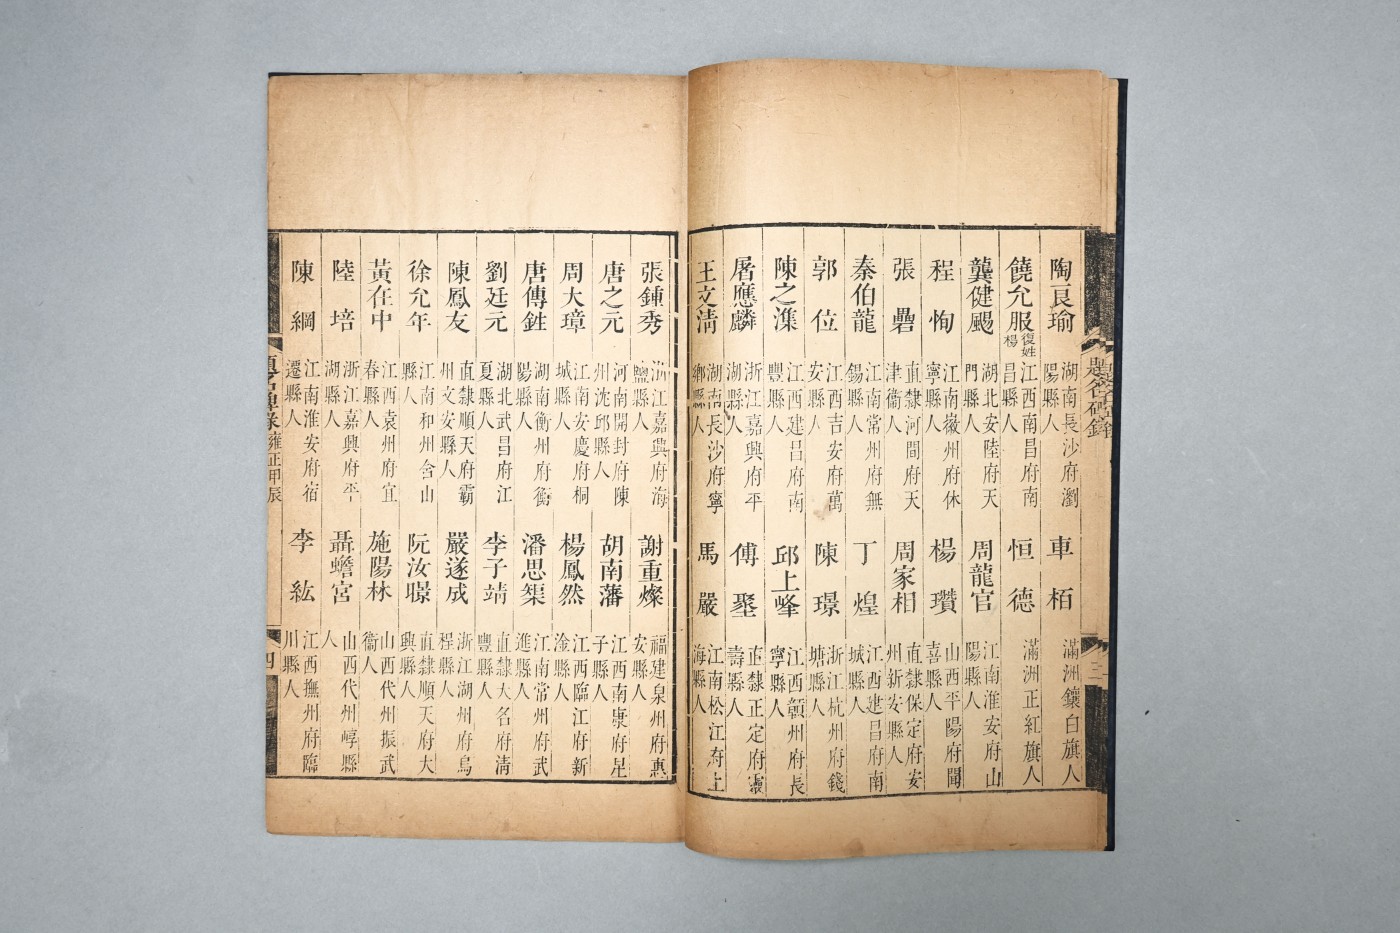 題名碑錄 三
陶良瑜 湖南長沙府瀏陽縣人 車栢 滿洲鑲白旗人
饒允服 復姓楊 江西南昌府南昌縣人 恒德 滿洲正紅旗人
龔健颺 湖北安陸府天門縣人 周龍官 江南淮安府山陽縣人
程恂 江南徽州府休寧縣人 楊瓚 山西平陽府聞喜縣人
張壘 直隸河間府天津衞人 周家相 直隸保定府安州新安縣人
秦伯龍 江南常州府無錫縣人 丁煌 江西建昌府南城縣人
郭位 江西吉安府萬安縣人 陳璟 浙江杭州府錢塘縣人
陳之潗 江西建昌府南豐縣人 邱上峰 江西贛州府長寧縣人
屠應麟 浙江嘉興府平湖縣人 傅 直隸正定府靈壽縣人
王文清 湖南長沙府寧鄉縣人 馬嚴 江南松江府上海縣人
張鍾秀 浙江嘉興府海鹽縣人 謝重燦 福建泉州府惠安縣人
唐之元 河南開封府陳州沈邱縣人 胡南藩 江西南康府星子縣人
周大璋 江南安慶府桐城縣人 楊鳳然 江西臨江府新淦縣人
唐傳鉎 湖南衡州府衡陽縣人 潘思榘 江南常州府武進縣人
劉廷元 湖北武昌府江夏縣人 李子靖 直隸大名府清豐縣人
陳鳳友 直隸順天府霸州文安縣人 嚴遂成 浙江湖州府烏程縣人
徐允年 江南和州含山縣人 阮汝暻 直隸順天府大興縣人
黃在中 江西袁州府宜春縣人 施陽林 山西代州振武衞人
陸培 浙江嘉興府平湖縣人 聶蟾宮 山西代州崞縣人
陳綱 江南淮安府宿遷縣人 李紘 江西撫州府臨川縣人
題名碑錄 雍正甲辰 四